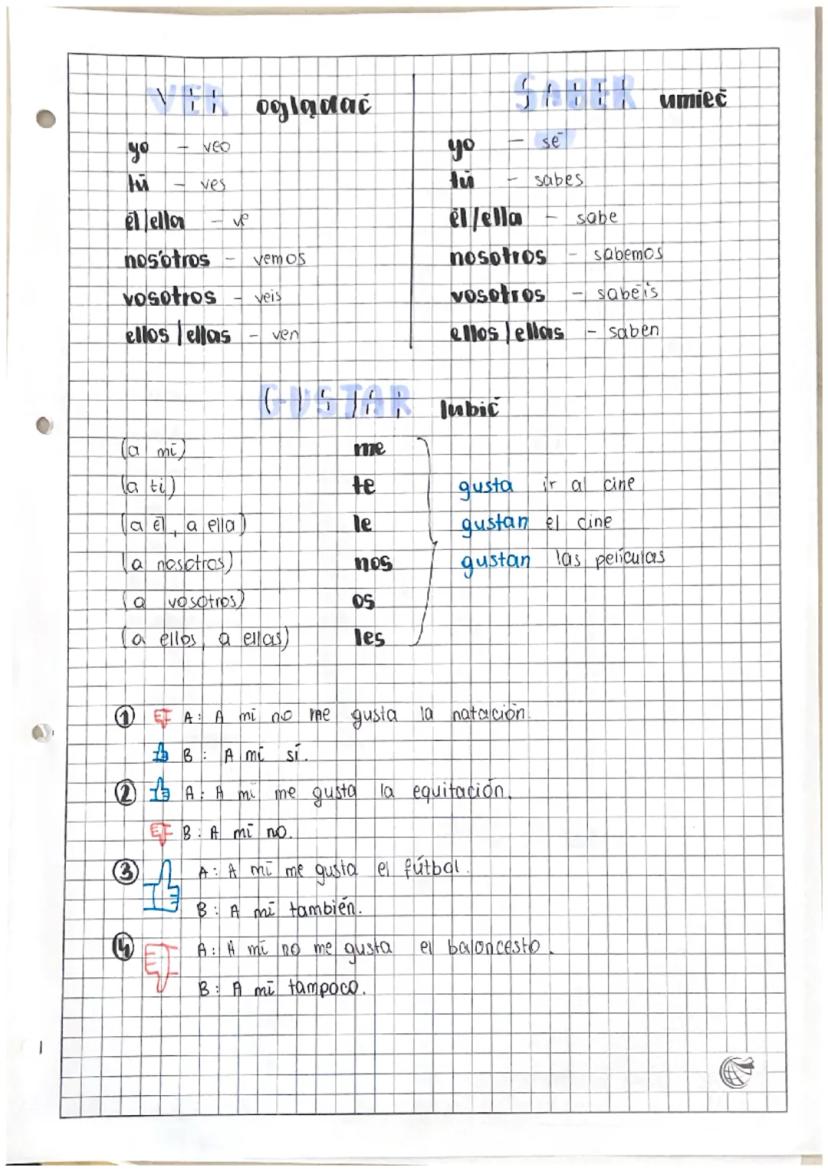 VER oglądać
yo – veo
tú – ves
él/ella – ve
nosotros – vemos
vosotros – veis
ellos/ellas – ven
SABER umieć
yo – sé
tú – sabes
él/ella – sabe
nosotros – sabemos
vosotros – sabéis
ellos/ellas – saben
GUSTAR lubić
(a mí) me
(a ti) te
(a él, a ella) le
(a nosotros) nos
(a vosotros) os
(a ellos, a ellas) les
gusta ir al cine
gustan el cine
gustan las películas
① A: A mí no me gusta la natación.
B: A mí sí.
② A: A mí me gusta la equitación.
B: A mí no.
③ A: A mí me gusta el fútbol.
B: A mí también.
④ A: A mí no me gusta el baloncesto.
B: A mí tampoco.